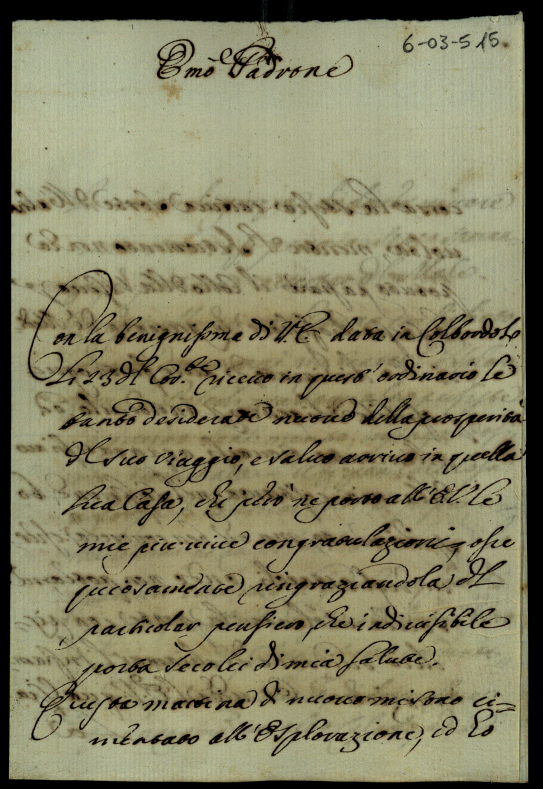 6-03-515
Emo Padrone
Con la benignissima di V.E. data in Colbordolo
li 23 del Cor.te ricevo in quest' ordinario le
tanto desiderate nuove della prosperità
del suo viaggio, e salvo arrivo in quella
sua Casa, che però ne porto all' E.V. le
mie più vive congratulazioni, osse
quiosamente ringraziandola del
particolar pensiero, che indicisibile
porta seco lei di mia salute.
Questa mattina di nuovo mi sono ci=
mentato all' Esplorazione, ed Eo